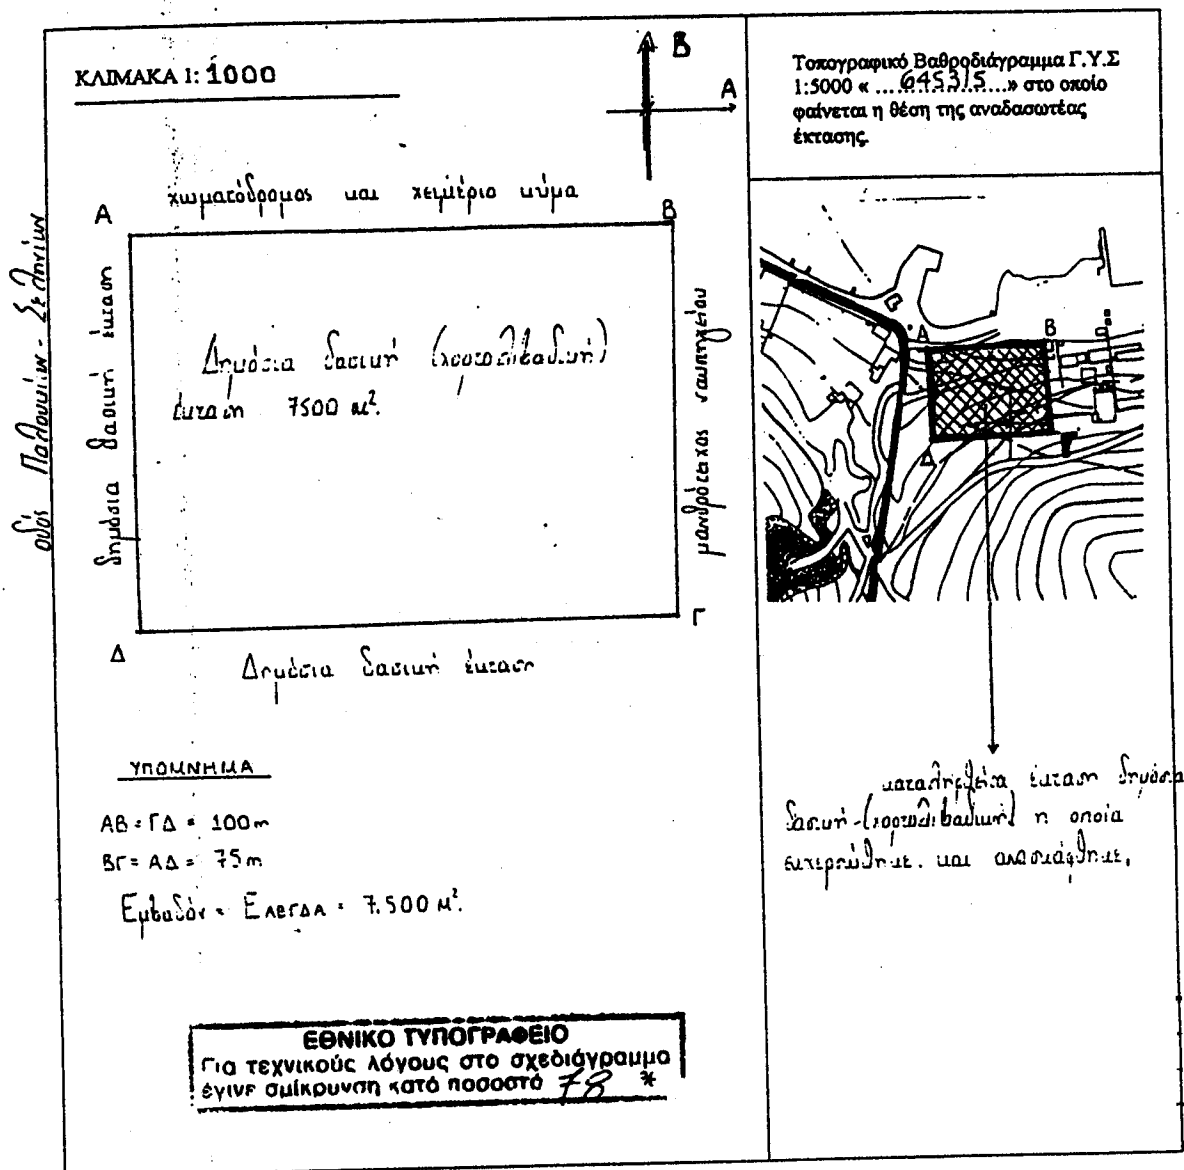 ΚΛΙΜΑΚΑ 1: 1000
Β
Α
χωματόδρομος και χειμέριο κύμα
Α
Β
οδός Παλουκίων - Σεληνίων
δημόσια δασική έκταση
Δημόσια δασική (χορτολιβαδική)
έκταση 7500 μ².
μανδρότειχος ναυπηγείου
Δ
Γ
Δημόσια δασική έκταση
ΥΠΟΜΝΗΜΑ
ΑΒ = ΓΔ = 100 m
ΒΓ = ΑΔ = 75 m
Εμβαδόν = ΕΑΒΓΔΑ = 7.500 μ².
ΕΘΝΙΚΟ ΤΥΠΟΓΡΑΦΕΙΟ
Για τεχνικούς λόγους στο σχεδιάγραμμα
έγινε σμίκρυνση κατά ποσοστό 78 *
Τοπογραφικό Βαθροδιάγραμμα Γ.Υ.Σ
1:5000 « ...6453/5...» στο οποίο
φαίνεται η θέση της αναδασωτέας
έκτασης.
Α
Β
Δ
Γ
καταληφθείσα έκταση δημόσια
δασική - (χορτολιβαδική) η οποία
εκχερσώθηκε και ανασκάφθηκε.